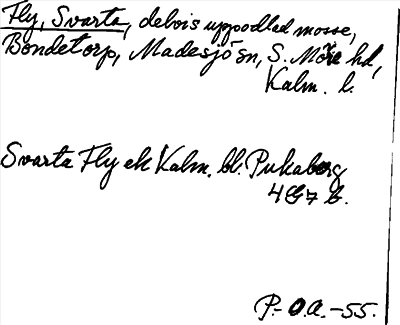 Fly, Svarta, delvis uppodlad mosse,
Bondetorp, Madesjö sn, S. Möre hd,
Kalm. l.
Svarta Fly ek Kalm. bl. Pukaberg
4G7 b.
P.-O.A.-55.